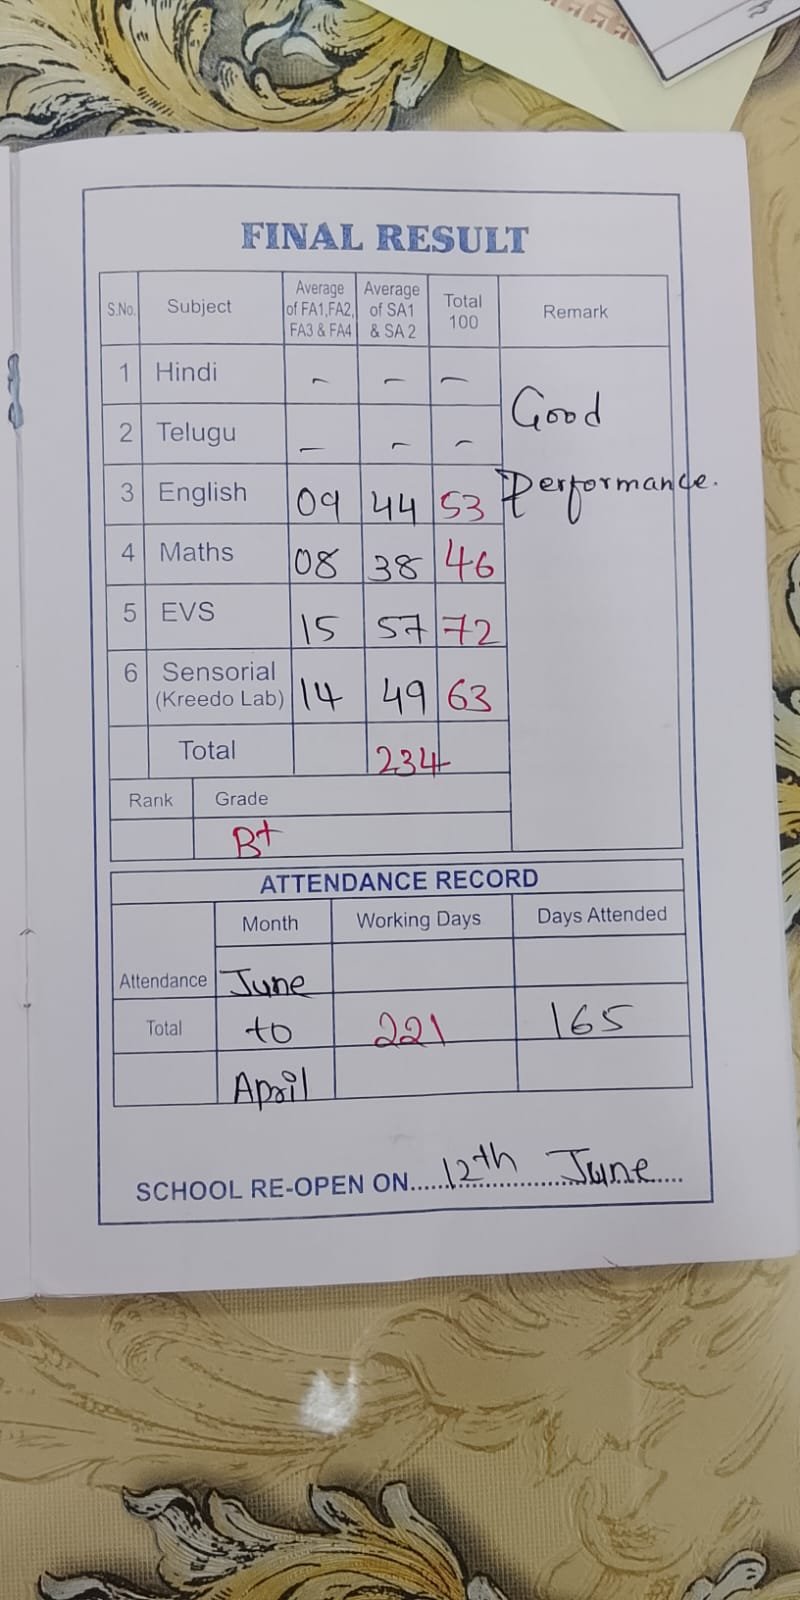 FINAL RESULT
S.No. Subject Average of FA1,FA2, FA3 & FA4 Average of SA1 & SA 2 Total 100 Remark
1 Hindi - - -
2 Telugu - - -
Good
3 English 09 44 53
Performance.
4 Maths 08 38 46
5 EVS 15 57 72
6 Sensorial (Kreedo Lab) 14 49 63
Total 234
Rank Grade
B+
ATTENDANCE RECORD
Month Working Days Days Attended
Attendance June
Total to 221 165
April
SCHOOL RE-OPEN ON......12th June.....